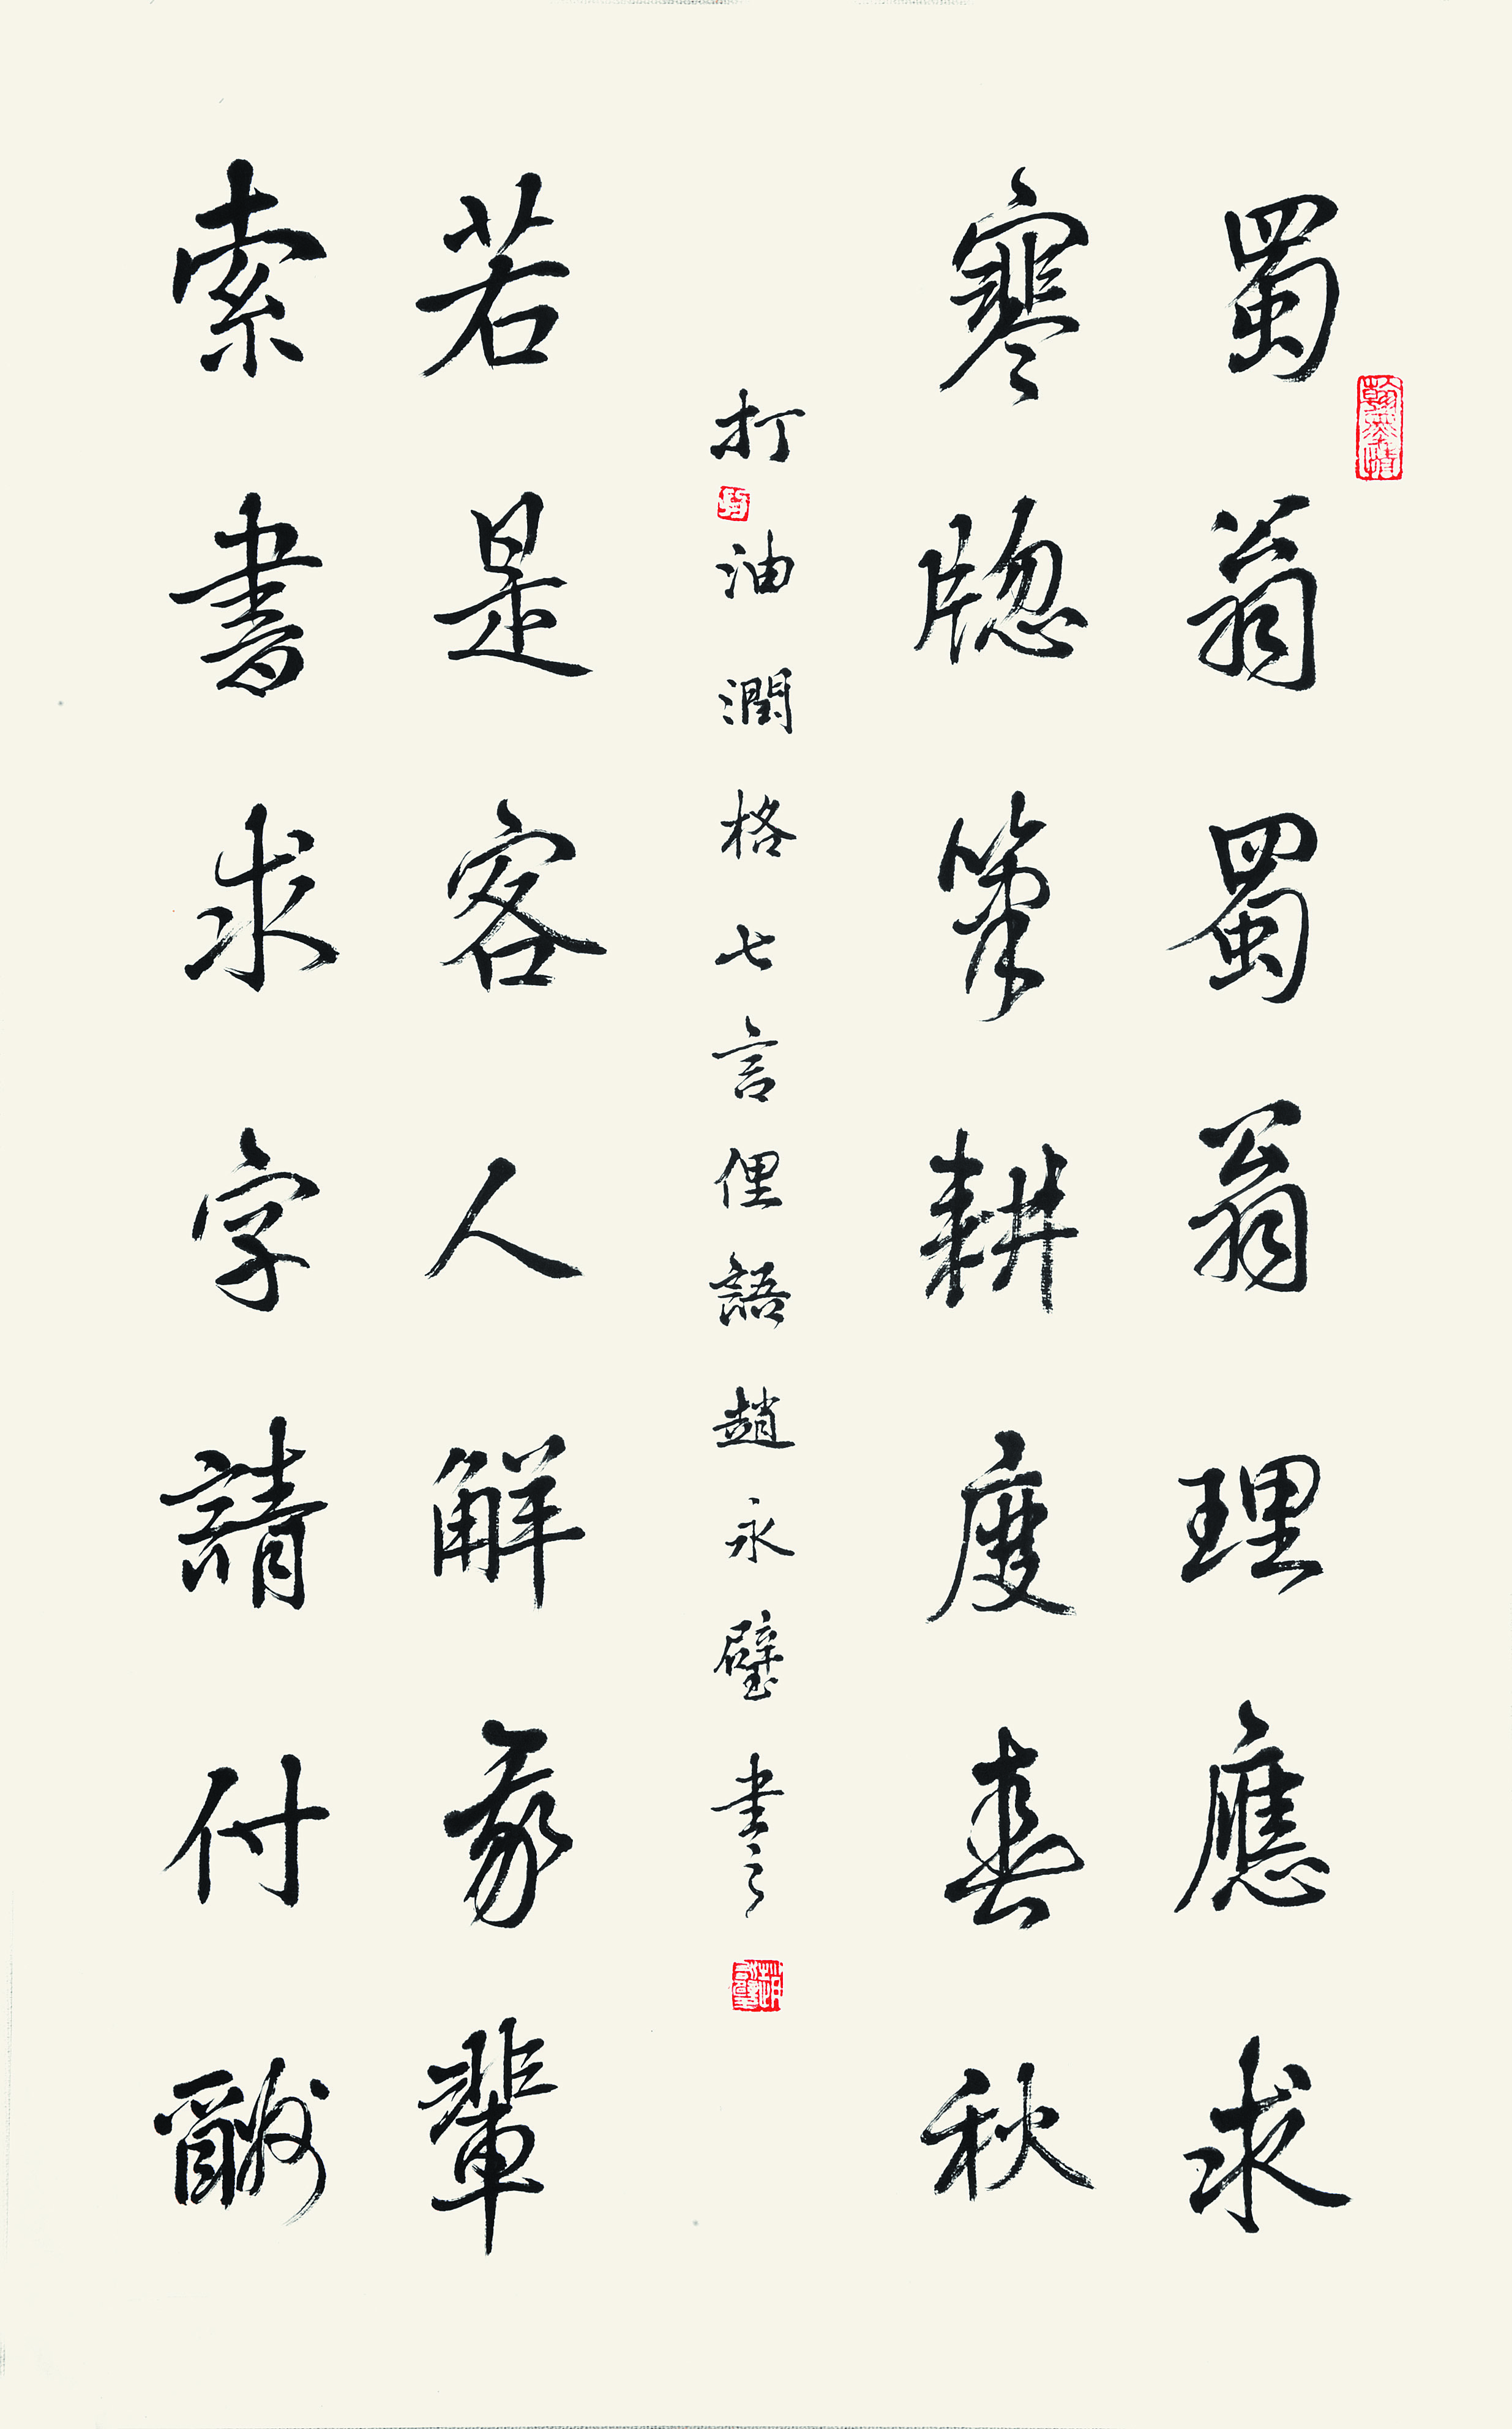 蜀翁蜀翁理應求
寒牎筆耕度春秋
打油潤格七言俚語趙永璧書之
若是客人解輩
索書求字請付酬